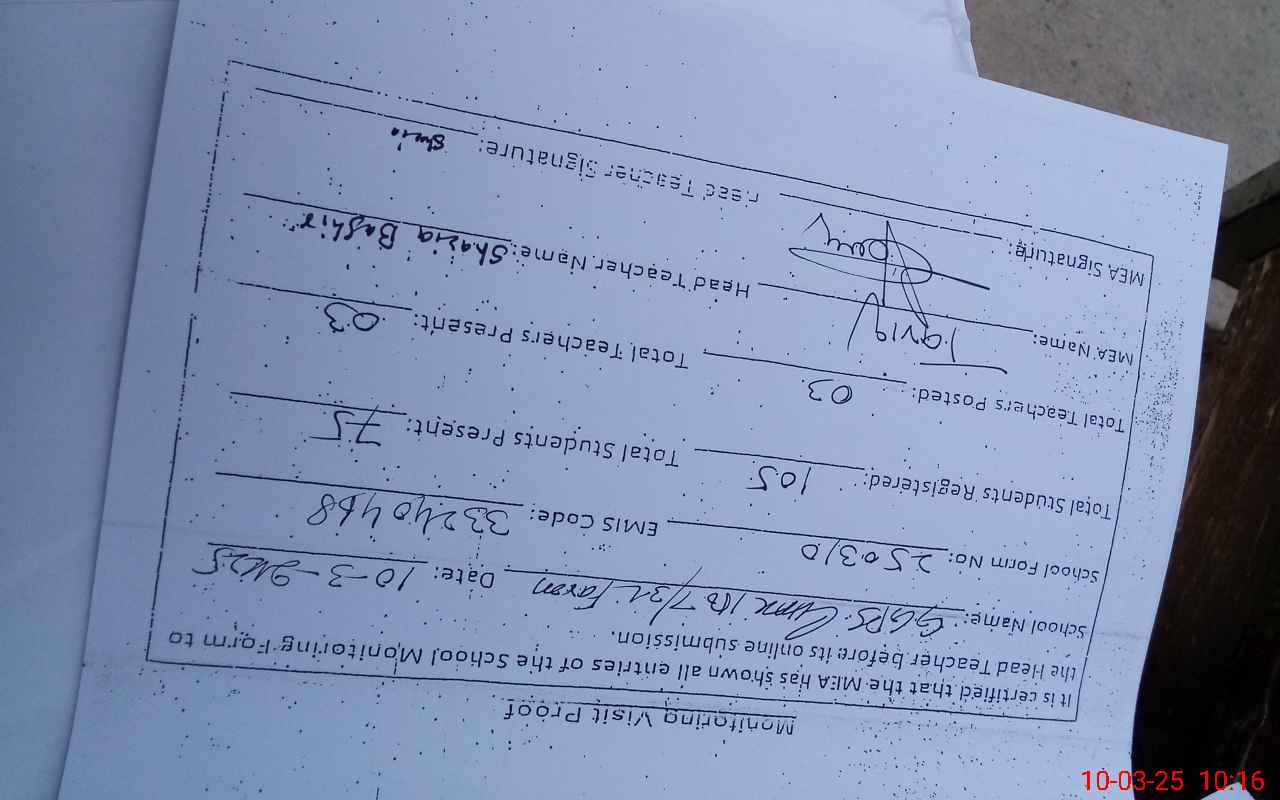 Monitoring Visit Proof
It is certified that the MEA has shown all entries of the School Monitoring Form to
the Head Teacher before its online submission.
School Name: GGPS 7/32 Farm Date: 10-3-2025
School Form No: 250310 EMIS Code: 33240468
Total Students Registered: 105 Total Students Present: 75
Total Teachers Posted: 03 Total Teachers Present: 03
MEA Name: Tariq Head Teacher Name: Shazia Bashir
MEA Signature: Head Teacher Signature:
10-03-25 10:16